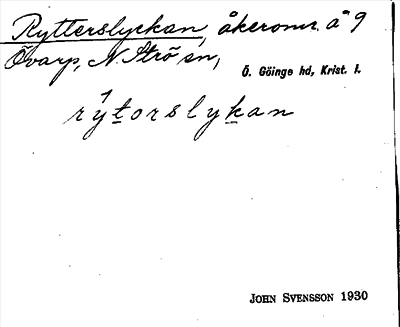 Rytterslyckan, åkeromr. å 9
Övarp, N. Strö sn,
Ö. Göinge hd, Krist. l.
rýtorslykan
JOHN SVENSSON 1930